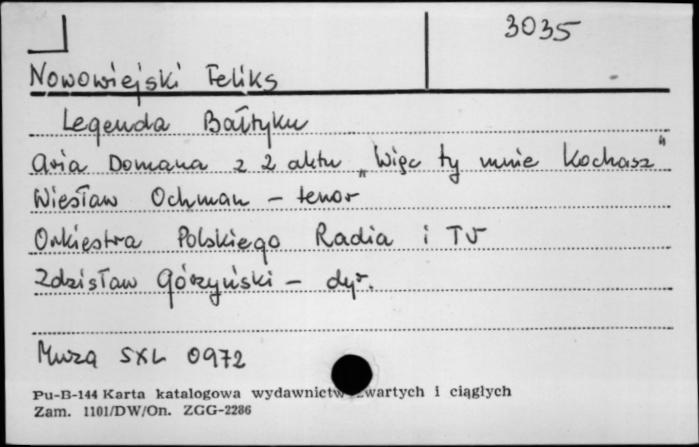 3035
Nowowiejski Feliks
Legenda Bałtyku
aria Domana z 2 aktu „Więc ty mnie kochasz"
Wiesław Ochman – tenor
Orkiestra Polskiego Radia i TV
Zdzisław Górzyński – dyr.
Muza SXL 0972
Pu-B-144 Karta katalogowa wydawnictw zwartych i ciągłych
Zam. 1101/DW/On. ZGG-2286